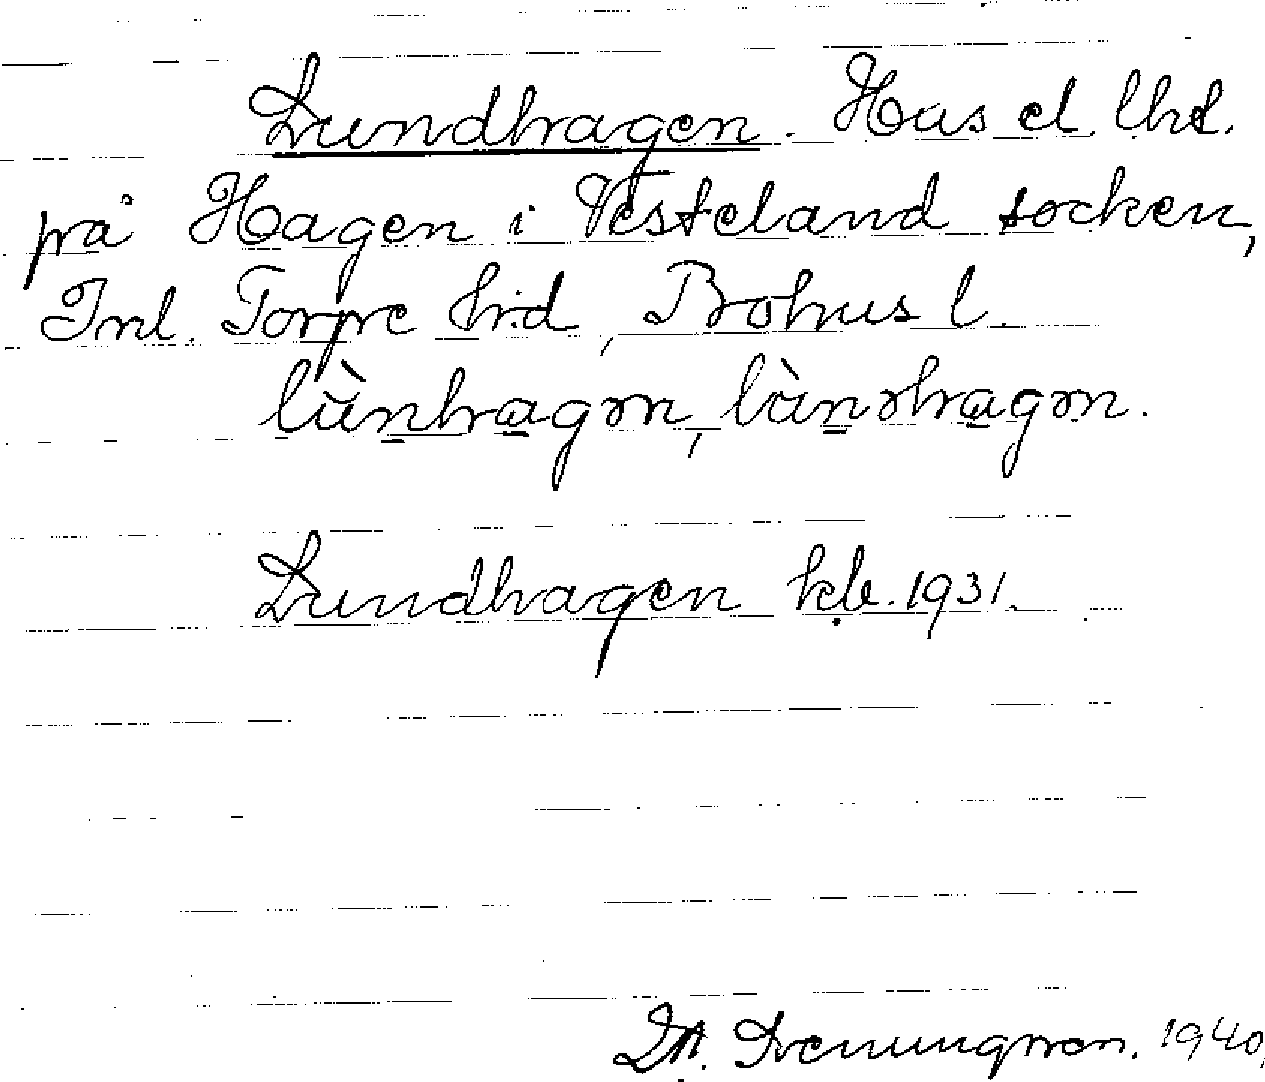 Lundhagen. Hus el. lht.
på Hagen i Västerland socken,
Inl. Torpe hd, Bohus l.
lùnhagən, lùn əhagən.
Lundhagen kb. 1931.
1940.